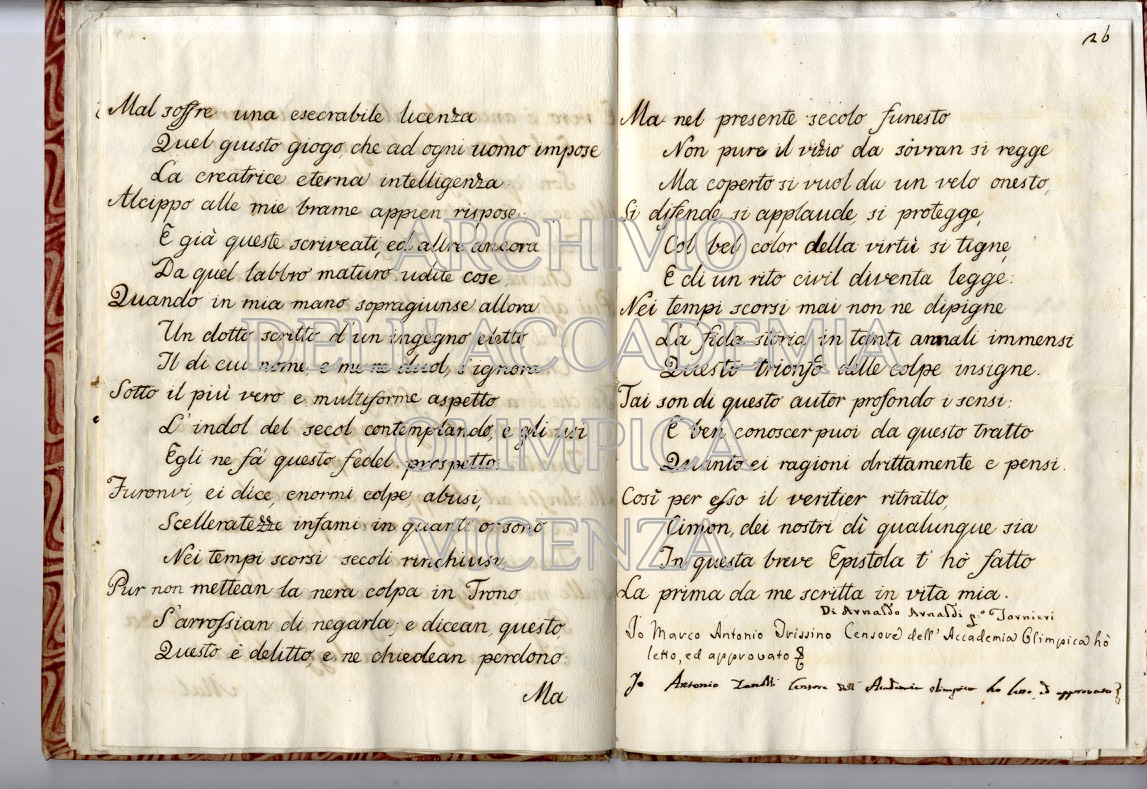 Mal soffre una esecrabile licenza
Quel giusto giogo, che ad ogni uomo impose
La creatrice eterna intelligenza
Alcippo alle mie brame appien rispose.
E già queste scriveati, ed altre ancora
Da quel labbro maturo udite cose
Quando in mia mano sopragiunse allora
Un dotto scritto d'un ingegno eletto
Il di cui nome, e me ne duol, s'ignora.
Sotto il più vero e multiforme aspetto
L'indol del secol contemplando, e gli usi
Egli ne fà questo fedel prospetto.
Furonvi, ei dice, enormi colpe, abusi,
Scelleratezze infami in quanti or sono
Nei tempi scorsi secoli rinchiusi,
Pur non mettean la nera colpa in Trono,
S'arrossian di negarla; e dicean, questo
Questo è delitto, e ne chiedean perdono
Ma
26
Ma nel presente secolo funesto
Non pure il vizio da sovran si regge
Ma coperto si vuol da un velo onesto,
Si difende, si applaude, si protegge,
Col bel color della virtù si tigne,
E di un rito civil diventa legge:
Nei tempi scorsi mai non ne dipigne
La fida storia in tanti annali immensi
Questo trionfo delle colpe insigne.
Tai son di questo autor profondo i sensi;
E ben conoscer puoi da questo tratto
Quanto ei ragioni drittamente e pensi.
Così per esso il veritier ritratto,
Cimon, dei nostri dì qualunque sia
In questa breve Epistola t'hò fatto
La prima da me scritta in vita mia.
Di Arnaldo Arnaldi Tornieri
Io Marco Antonio Trissino Censore dell'Accademia Olimpica hò
letto, ed approvato
Io Antonio Censore dell'Accademia olimpica ho letto, ed approvato
ARCHIVIO
DELL'ACCADEMIA
OLIMPICA
VICENZA